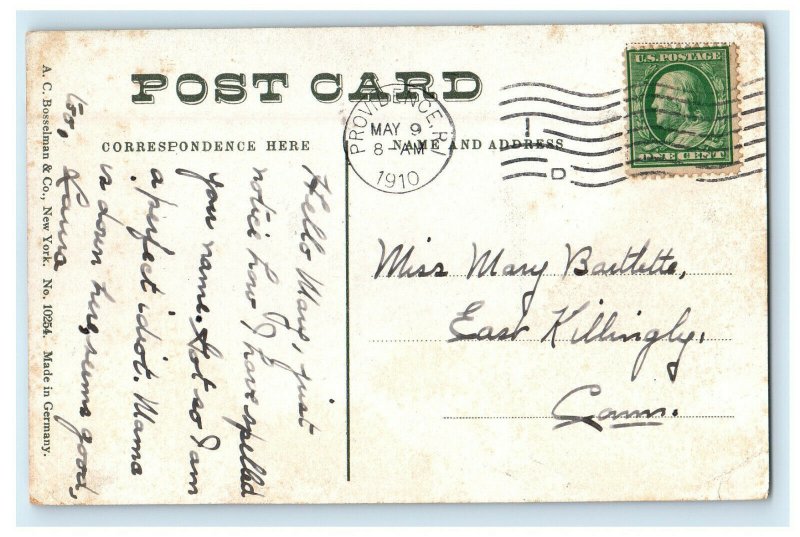 POST CARD
CORRESPONDENCE HERE
NAME AND ADDRESS
PROVIDENCE, R.I.
MAY 9
8-AM
1910
1
D
U.S. POSTAGE
ONE CENT
Hello Mans, just
notice how I have spelled
you name. Got so I am
a perfect idiot. Mama
is down here, seems good,
too, Laura
Miss Mary Bartlette,
East Killingly,
Conn.
A. C. Bosselman & Co., New York. No. 10254. Made in Germany.